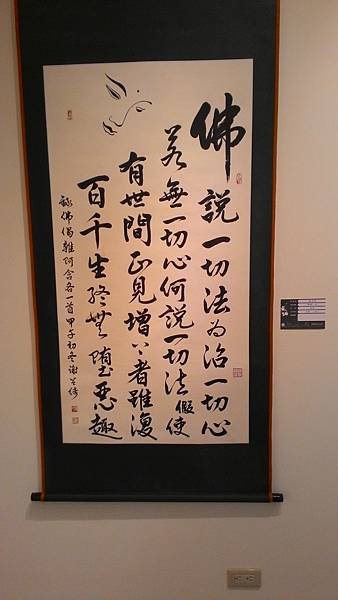 佛說一切法為治一切心
若無一切心何說一切法假使
有世間正見增上者雖復
百千生終無墮惡趣
錄佛偈雜阿含各一首甲子初冬謝